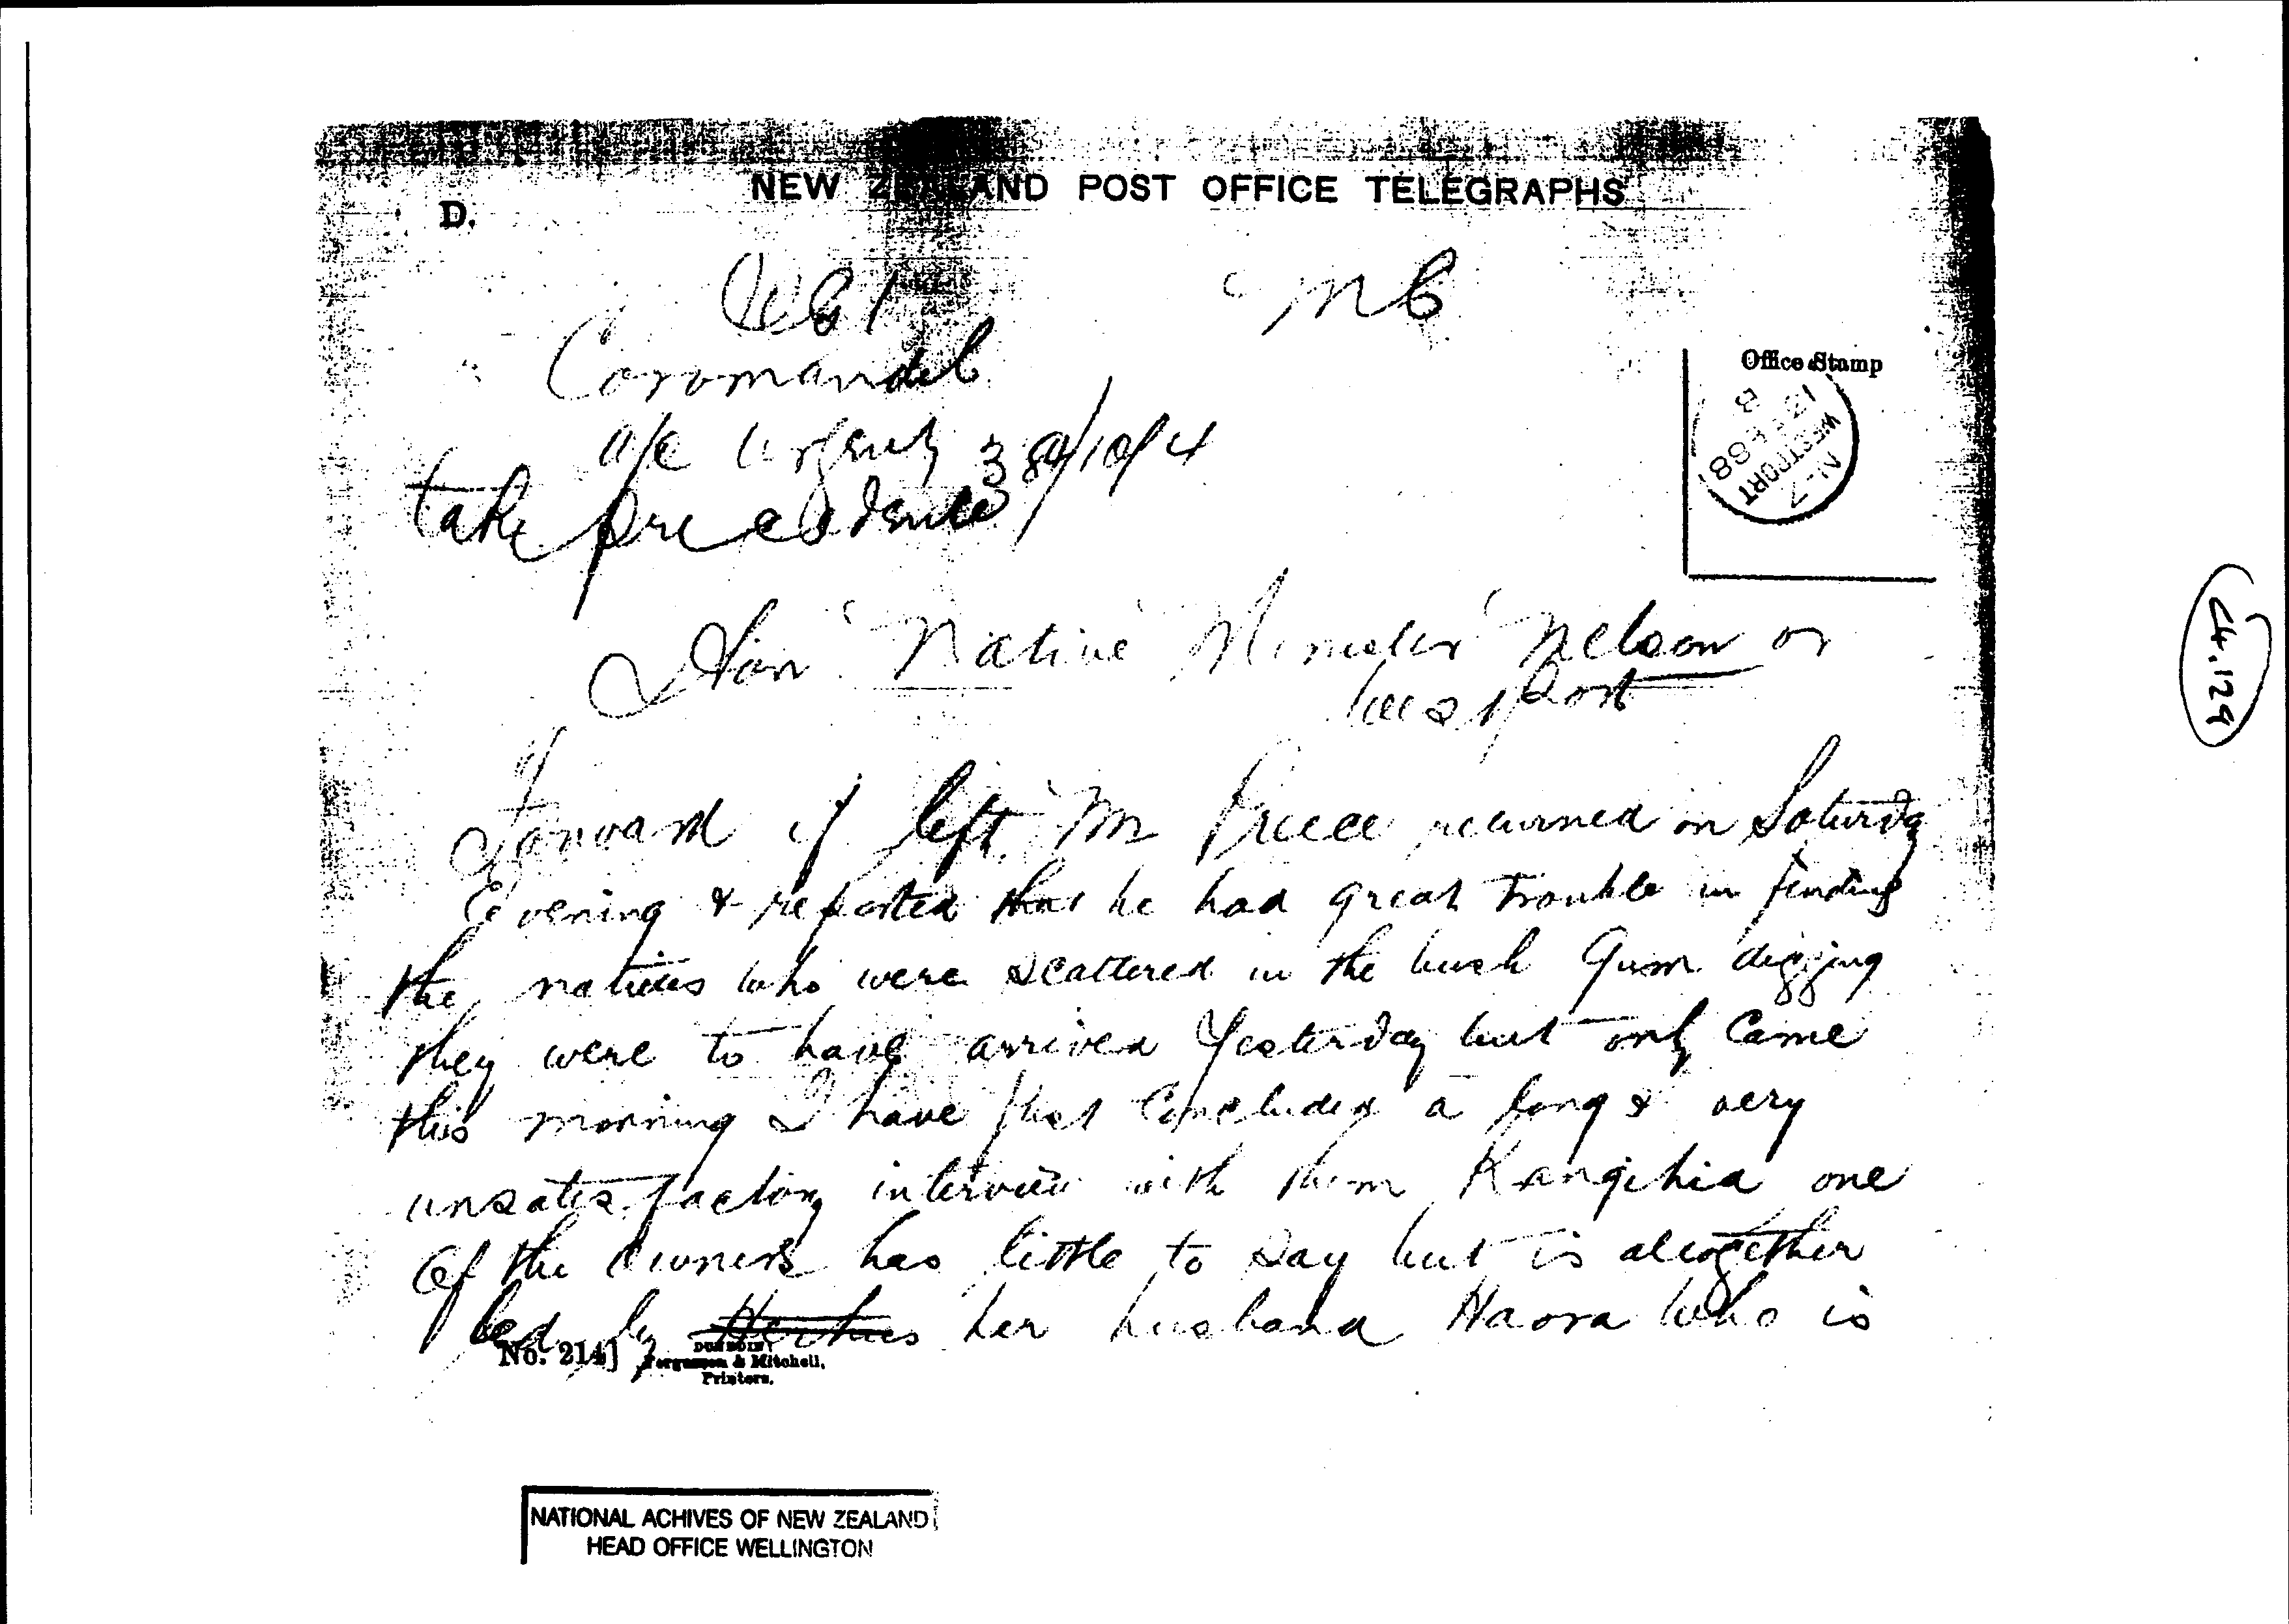 NEW ZEALAND POST OFFICE TELEGRAPHS
D.
M B
Coromandel
Office Stamp
WESTPORT
N.Z
88
Urgent 384/10/4
take precedence
Hon Native Minister Nelson or
Westport
Forward if left Mr Preece returned on Saturday
Evening & reported that he had great trouble in finding
the natives who were scattered in the bush Gum digging
they were to have arrived Yesterday but only Came
this morning I have just Concluded a long & very
unsatisfactory interview with them Rangihia one
Of the Owners has little to say but is altogether
led by her husband Haora who is
No. 214]
Fergusson & Mitchell,
Printers.
NATIONAL ACHIVES OF NEW ZEALAND
HEAD OFFICE WELLINGTON
C4.129